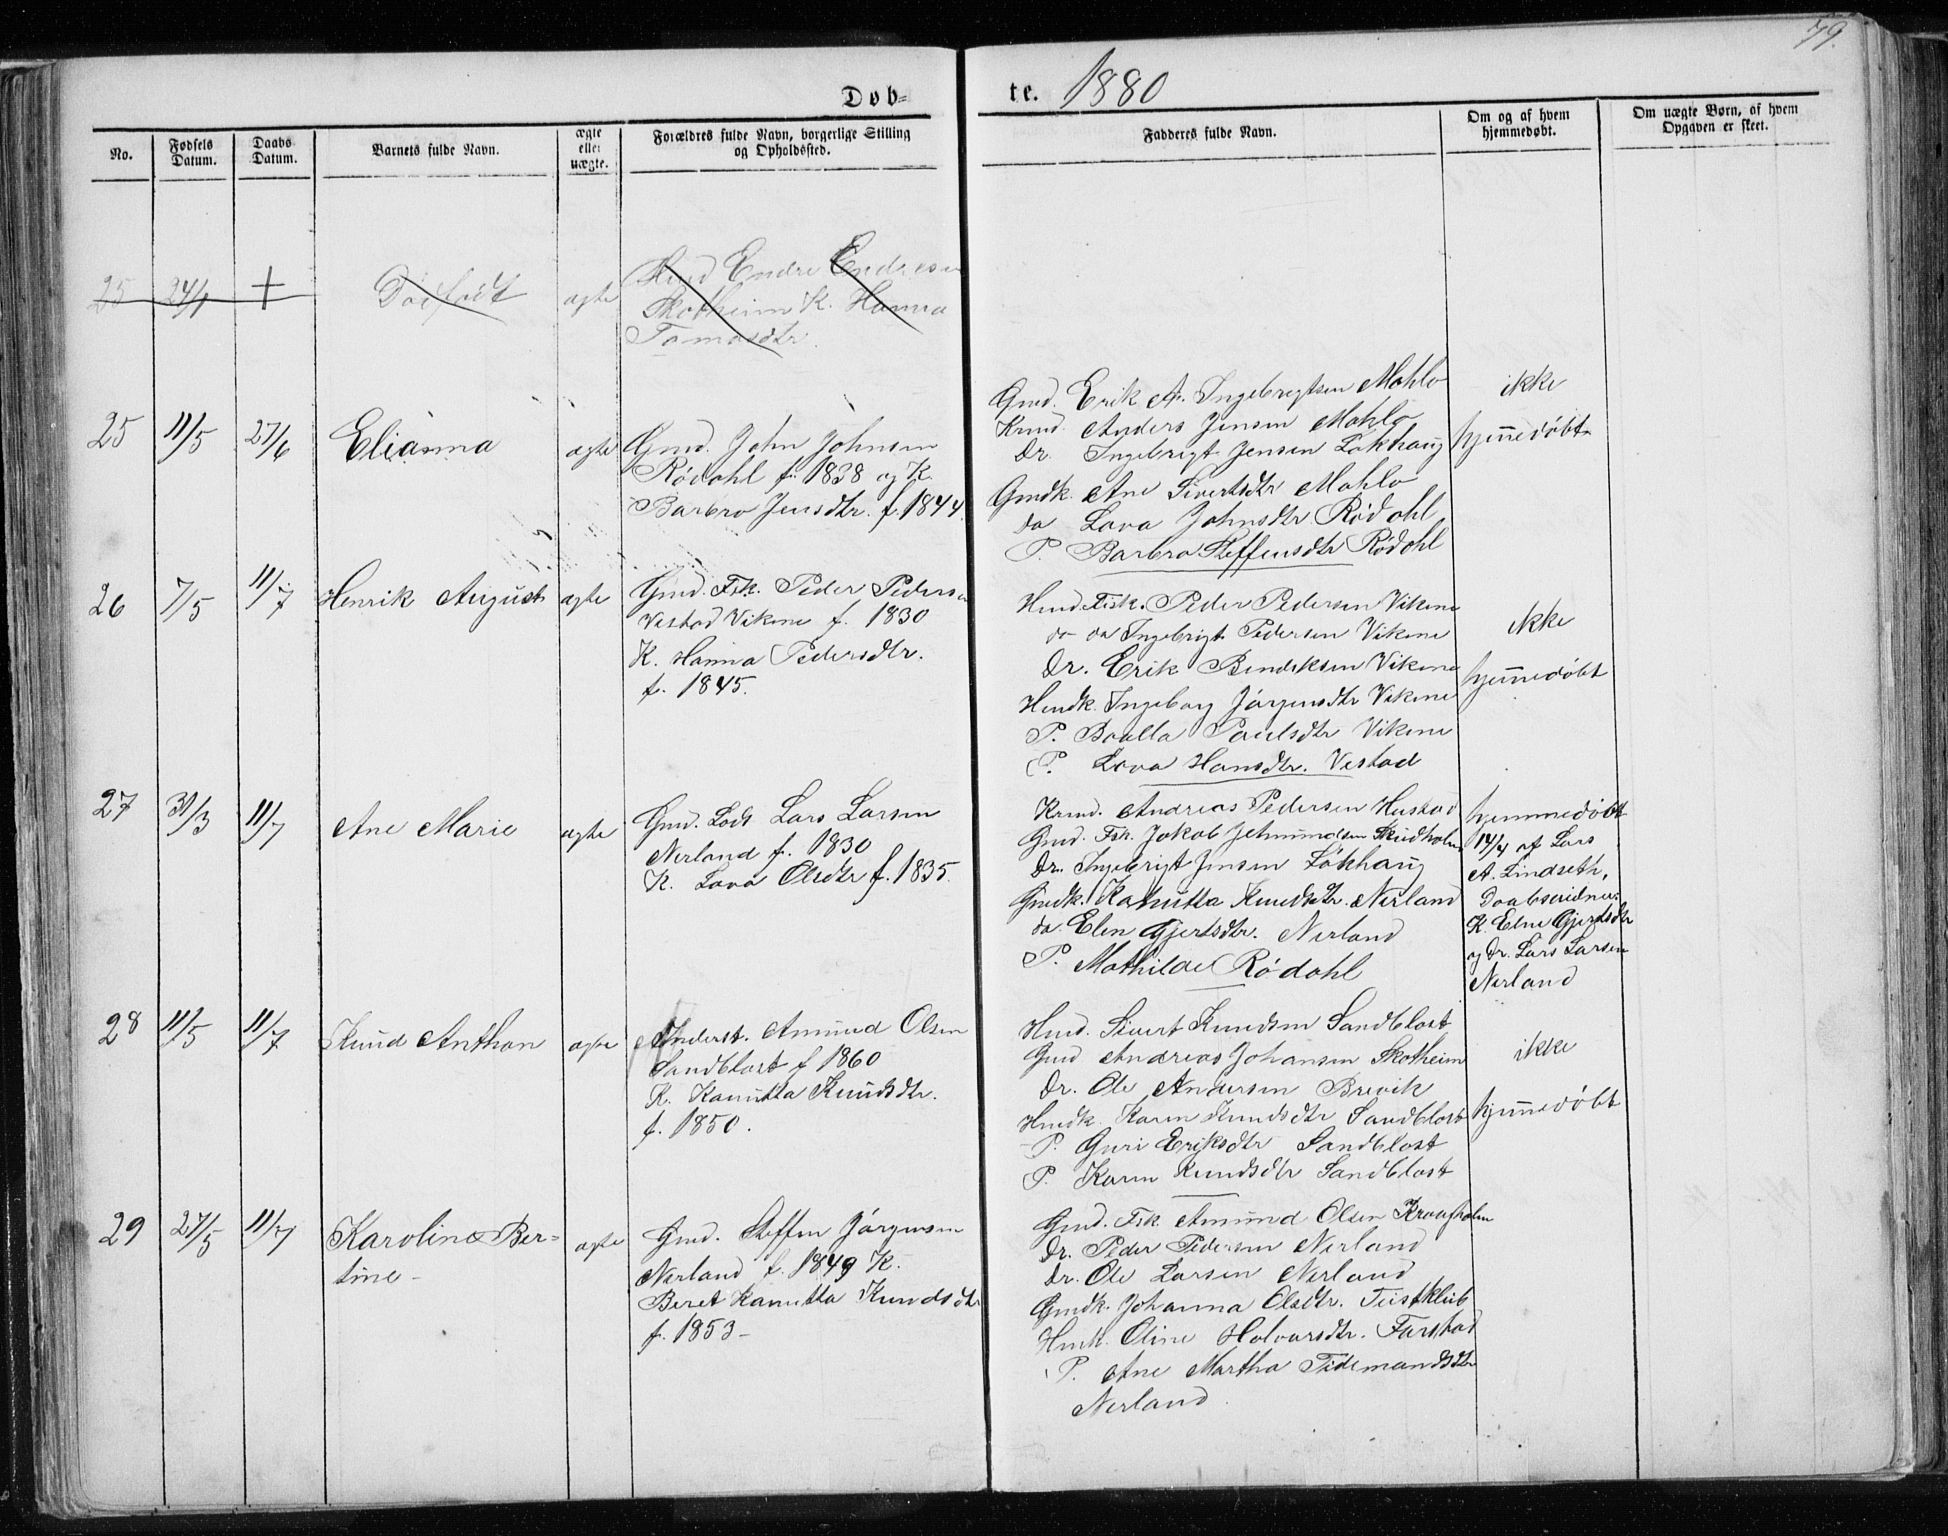 79.
Døb=
te. 1880
No.
Fødsels Datum.
Daabs Datum.
Barnets fulde Navn.
ægte eller uægte.
Forældres fulde Navn, borgerlige Stilling og Opholdssted.
Fadderes fulde Navn.
Om og af hvem hjemmedøbt.
Om uægte Børn, af hvem Opgaven er skeet.
25 24/4 + Dødfødt ægte
Hmd Endre Endresen
Skotheim K. Hanna
Tomasdtr.
25 11/5 27/6 Elianna ægte
Gmd. John Johnsen
Rødahl f. 1838 og K.
Barbro Jensdtr. f. 1844.
Gmd. Erik A. Ingebrigtsen Mahlo
Kmd. Anders Jensen Mahlo
Dr. Ingebrigt Jensen Løkhaug
Gmdk. Ane Sivertsdtr Mahlo
do Lava Johnsdtr Rødahl
P. Barbro Steffensdtr Rødahl
ikke
hjemmedøbt
26 7/5 11/7 Henrik August ægte
Gmd. Fsk. Peder Pedersen
Vestad Vikene f. 1830
K. Hanna Pedersdtr.
f. 1845.
Hmd. Fisk. Peder Pedersen Vikene
do do Ingebrigt Pedersen Vikene
Dr. Erik Bendiksen Vikene
Hmdk. Ingeborg Jørgensdtr Vikene
P. Paulsdtr Vikene
P. Lava Hansdtr. Vestad
ikke
hjemmedøbt
27 31/3 11/7 Ane Marie ægte
Gmd. Lods Lars Larsen
Nerland f. 1830
K. Lava Olsdtr f. 1835.
Kmd. Andreas Pedersen Hustad
Gmd. Fsk. Jakob Jetmundsen
Dr. Ingebrigt Jensen Løkhaug
Gmdk. Kanutta Knudsdtr. Nerland
do. Elen Gjertsdtr. Nerland
P. Mathilde Rødahl
hjemmedøbt
14/4 af Lars
A. Lindseth,
Daabsvidner:
K. Elne Gjertsdtr
og Dr. Lars Larsen
Nerland
28 11/5 11/7 Knud Anthon ægte
Inderst. Amund Olsen
Sandblost f 1860
K. Kanutta Knudsdtr.
f. 1850.
Hmd. Sivert Knudsen Sandblost
Gmd Andreas Johansen Skotheim
Dr. Ole Andersen Brevik
Hmdk. Karen Knudsdtr Sandblost
P. Guri Eriksdtr Sandblost
P. Karen Knudsdtr Sandblost
ikke
hjemmedøbt
29 27/5 11/7 Karoline Ber= ægte
tine
Gmd. Steffen Jørgensen
Nerland f. 1849 K.
Beret Kanutta Knudsdtr
f. 1853
Gmd. Fsk. Amund Olsen
Dr. Peder Pedersen Nerland
Dr. Ole Larsen Nerland
Gmdk. Johanna Olsdtr.
Hmk. Oline Halvarsdtr. Farstad
P. Ane Martha Tidemandsdtr
Nerland.